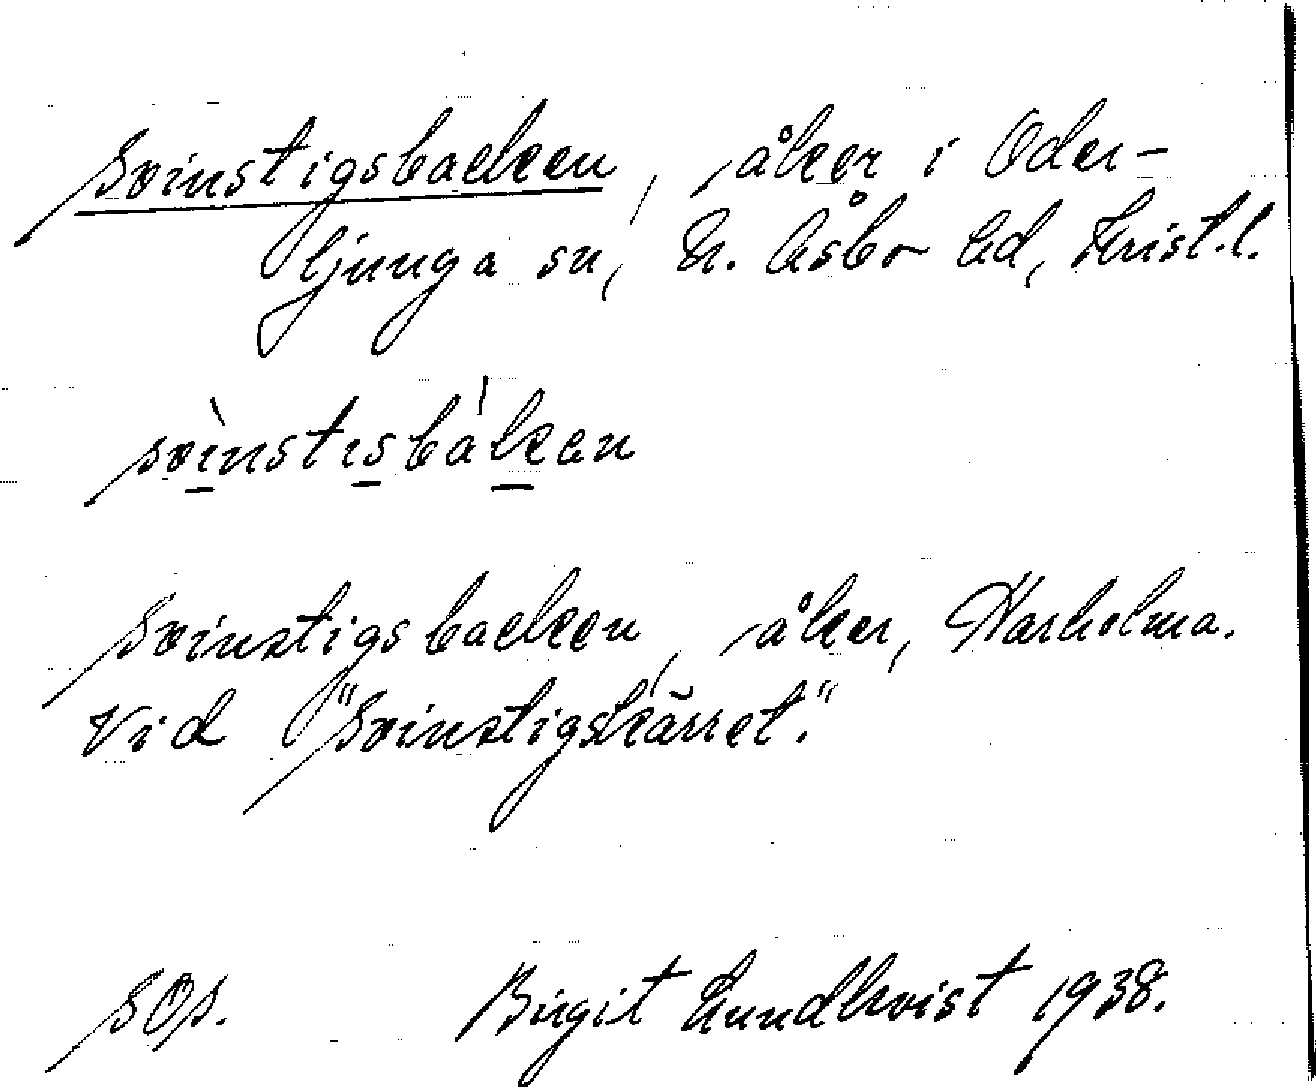 Svinstigsbacken, åker i Oder-
ljunga sn, N. Åsbo hd, Krist.l.
svìnstisbàken
Svinstigsbacken, åker, Harholma.
Vid "Svinstigskärret."
SOs.
Birgit Lundkvist 1938.